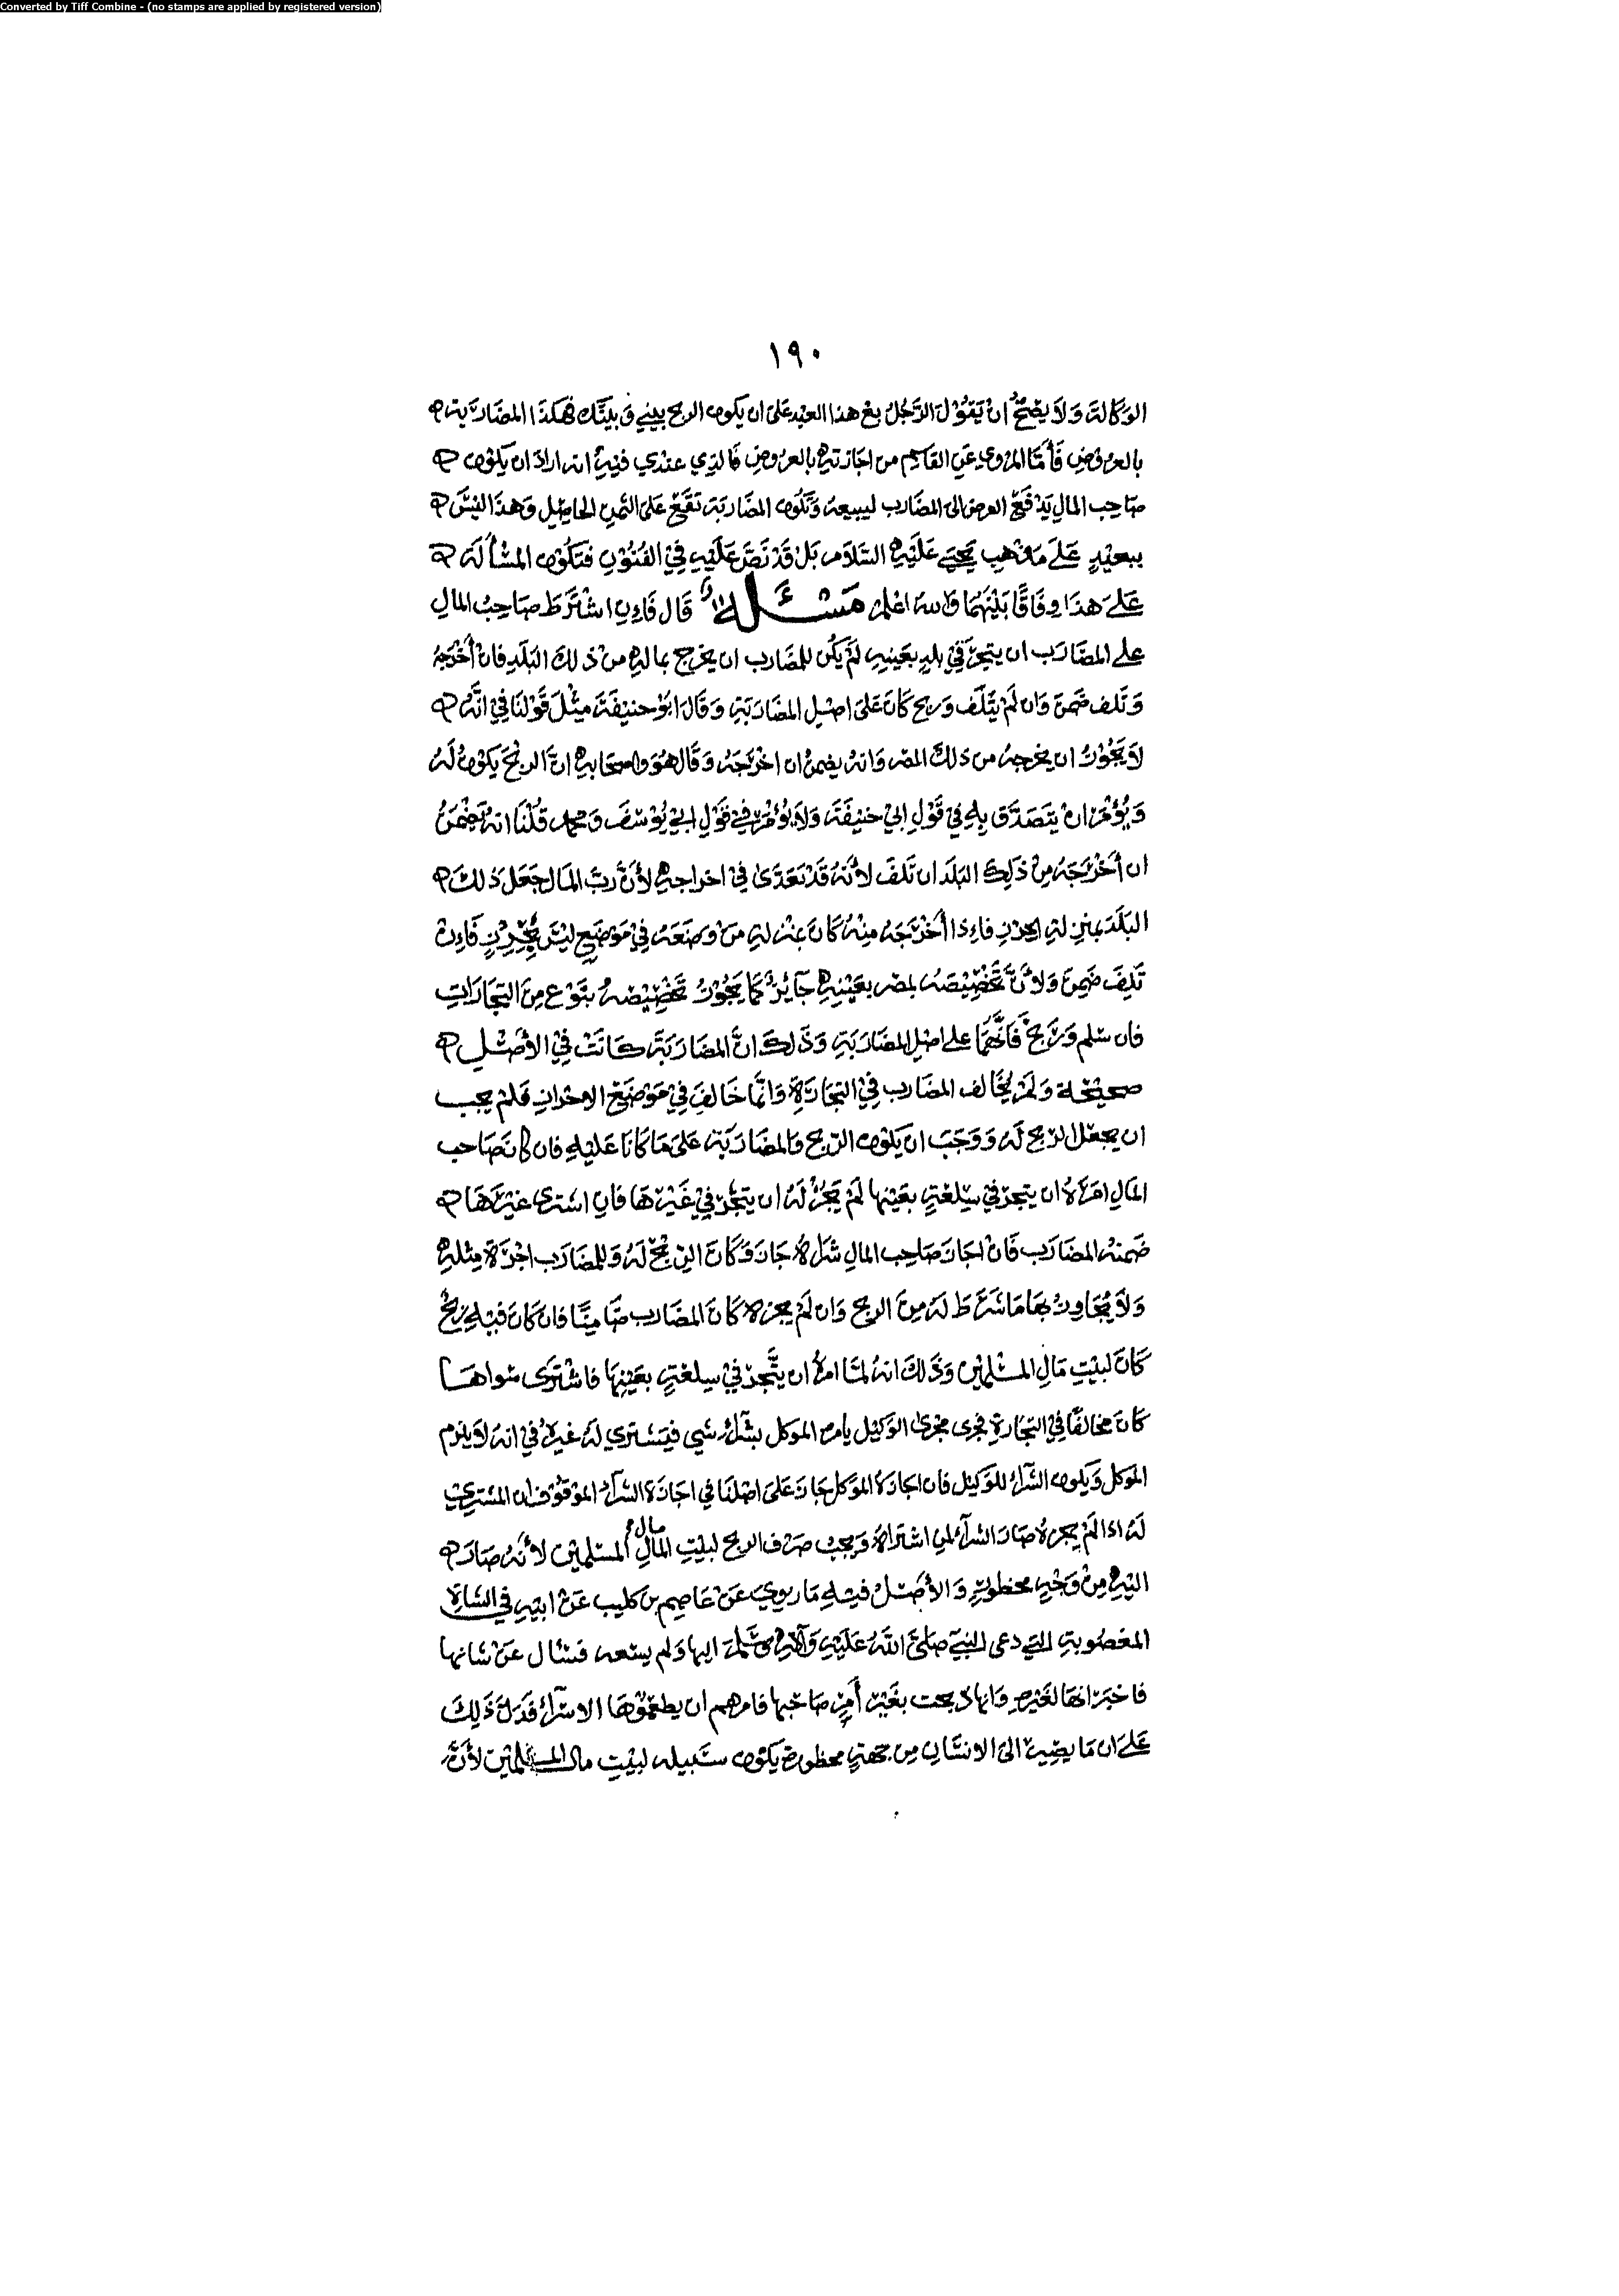 Converted by Tiff Combine - (no stamps are applied by registered version)
١٩٠
الوكالة ولا يصح ان يقول الرجل بع هذا العبد على ان يكون الربح بيني وبينك فهكذا المضاربة
بالعروض فأما المروي عن القاسم من اجازته بالعروض فالذي عندي فيه انه اراد ان يكون
صاحب المال يدفع العرض الى المضارب ليبيعه وتكون المضاربة تقع على الثمن الحاصل وهذا ليس
ببعيد على مذهب يحيى عليه السلام بل قد نص عليه في الفنون فتكون المسألة
على هذا وفاقا بينهما والله اعلم مسئلة قال فإن اشترط صاحب المال
على المضارب ان يتجر في بلد بعينه لم يكن للمضارب ان يخرج بماله من ذلك البلد فان أخرجه
وتلف ضمن وان لم يتلف وربح كان على اصل المضاربة وقال ابو حنيفة مثل قولنا في انه
لا يجوز ان يخرجه من ذلك المصر وانه يضمن ان اخرجه وقال هو واصحابه ان الربح يكون له
ويؤمر ان يتصدق به في قول ابي حنيفة ولا يؤمر في قول ابي يوسف ومحمد قلنا انه يضمن
ان أخرجه من ذلك البلد ان تلف لأنه قد تعدى في اخراجه لأن رب المال جعل ذلك
البلد بمنزلة الحرز فاذا أخرجه منه كان بمنزلة من وضعه في موضع ليس بحرز فإن
تلف ضمن ولأن تخصيصه بمصر بعينه جائز كما يجوز تخصيصه بنوع من التجارات
فان سلم وربح فانهما على اصل المضاربة وذلك ان المضاربة كانت في الأصل
صحيحة ولم يخالف المضارب في التجارة وانما خالف في موضع الاحراز فلم يجب
ان يجعل الربح له ووجب ان يكون الربح والمضاربة على ما كانا عليه فان كان صاحب
المال امره ان يتجر في سلعة بعينها لم يجز له ان يتجر في غيرها فان اشترى غيرها
ضمنه المضارب فان اجاز صاحب المال شراه جاز وكان الربح له وللمضارب اجرة مثله
ولا يجاوز بها ما شرط له من الربح وان لم يجزه كان المضارب ضامنا فان كان فيه ربح
كان لبيت مال المسلمين وذلك انه لما امره ان يتجر في سلعة بعينها فاشترى سواها
كان مخالفا في التجارة فجرى مجرى الوكيل يامره الموكل بشراء شي فيشتري له غيره في انه لا يلزم
الموكل ويكون الشراء للوكيل فان اجازه الموكل جاز على اصلنا في اجازة الشراء الموقوف ان المشتري
له اذا لم يجزه صار الشراء لمن اشتراه ويجب صرف الربح لبيت المال مال المسلمين لأنه صار
اليه من وجه محظور والأصل فيه ما روي عن عاصم بن كليب عن ابيه في الشاة
المغصوبة التي دعي النبي صلى الله عليه وآله وسلم اليها ولم يسغه فسئال عن شانها
فاخبر انها لغيره وانها ذبحت بغير أمر صاحبها فامرهم ان يطعموها الاسراء فدل ذلك
على ان ما يصير الى الانسان من جهة محظورة يكون سبيله لبيت مال المسلمين لأن